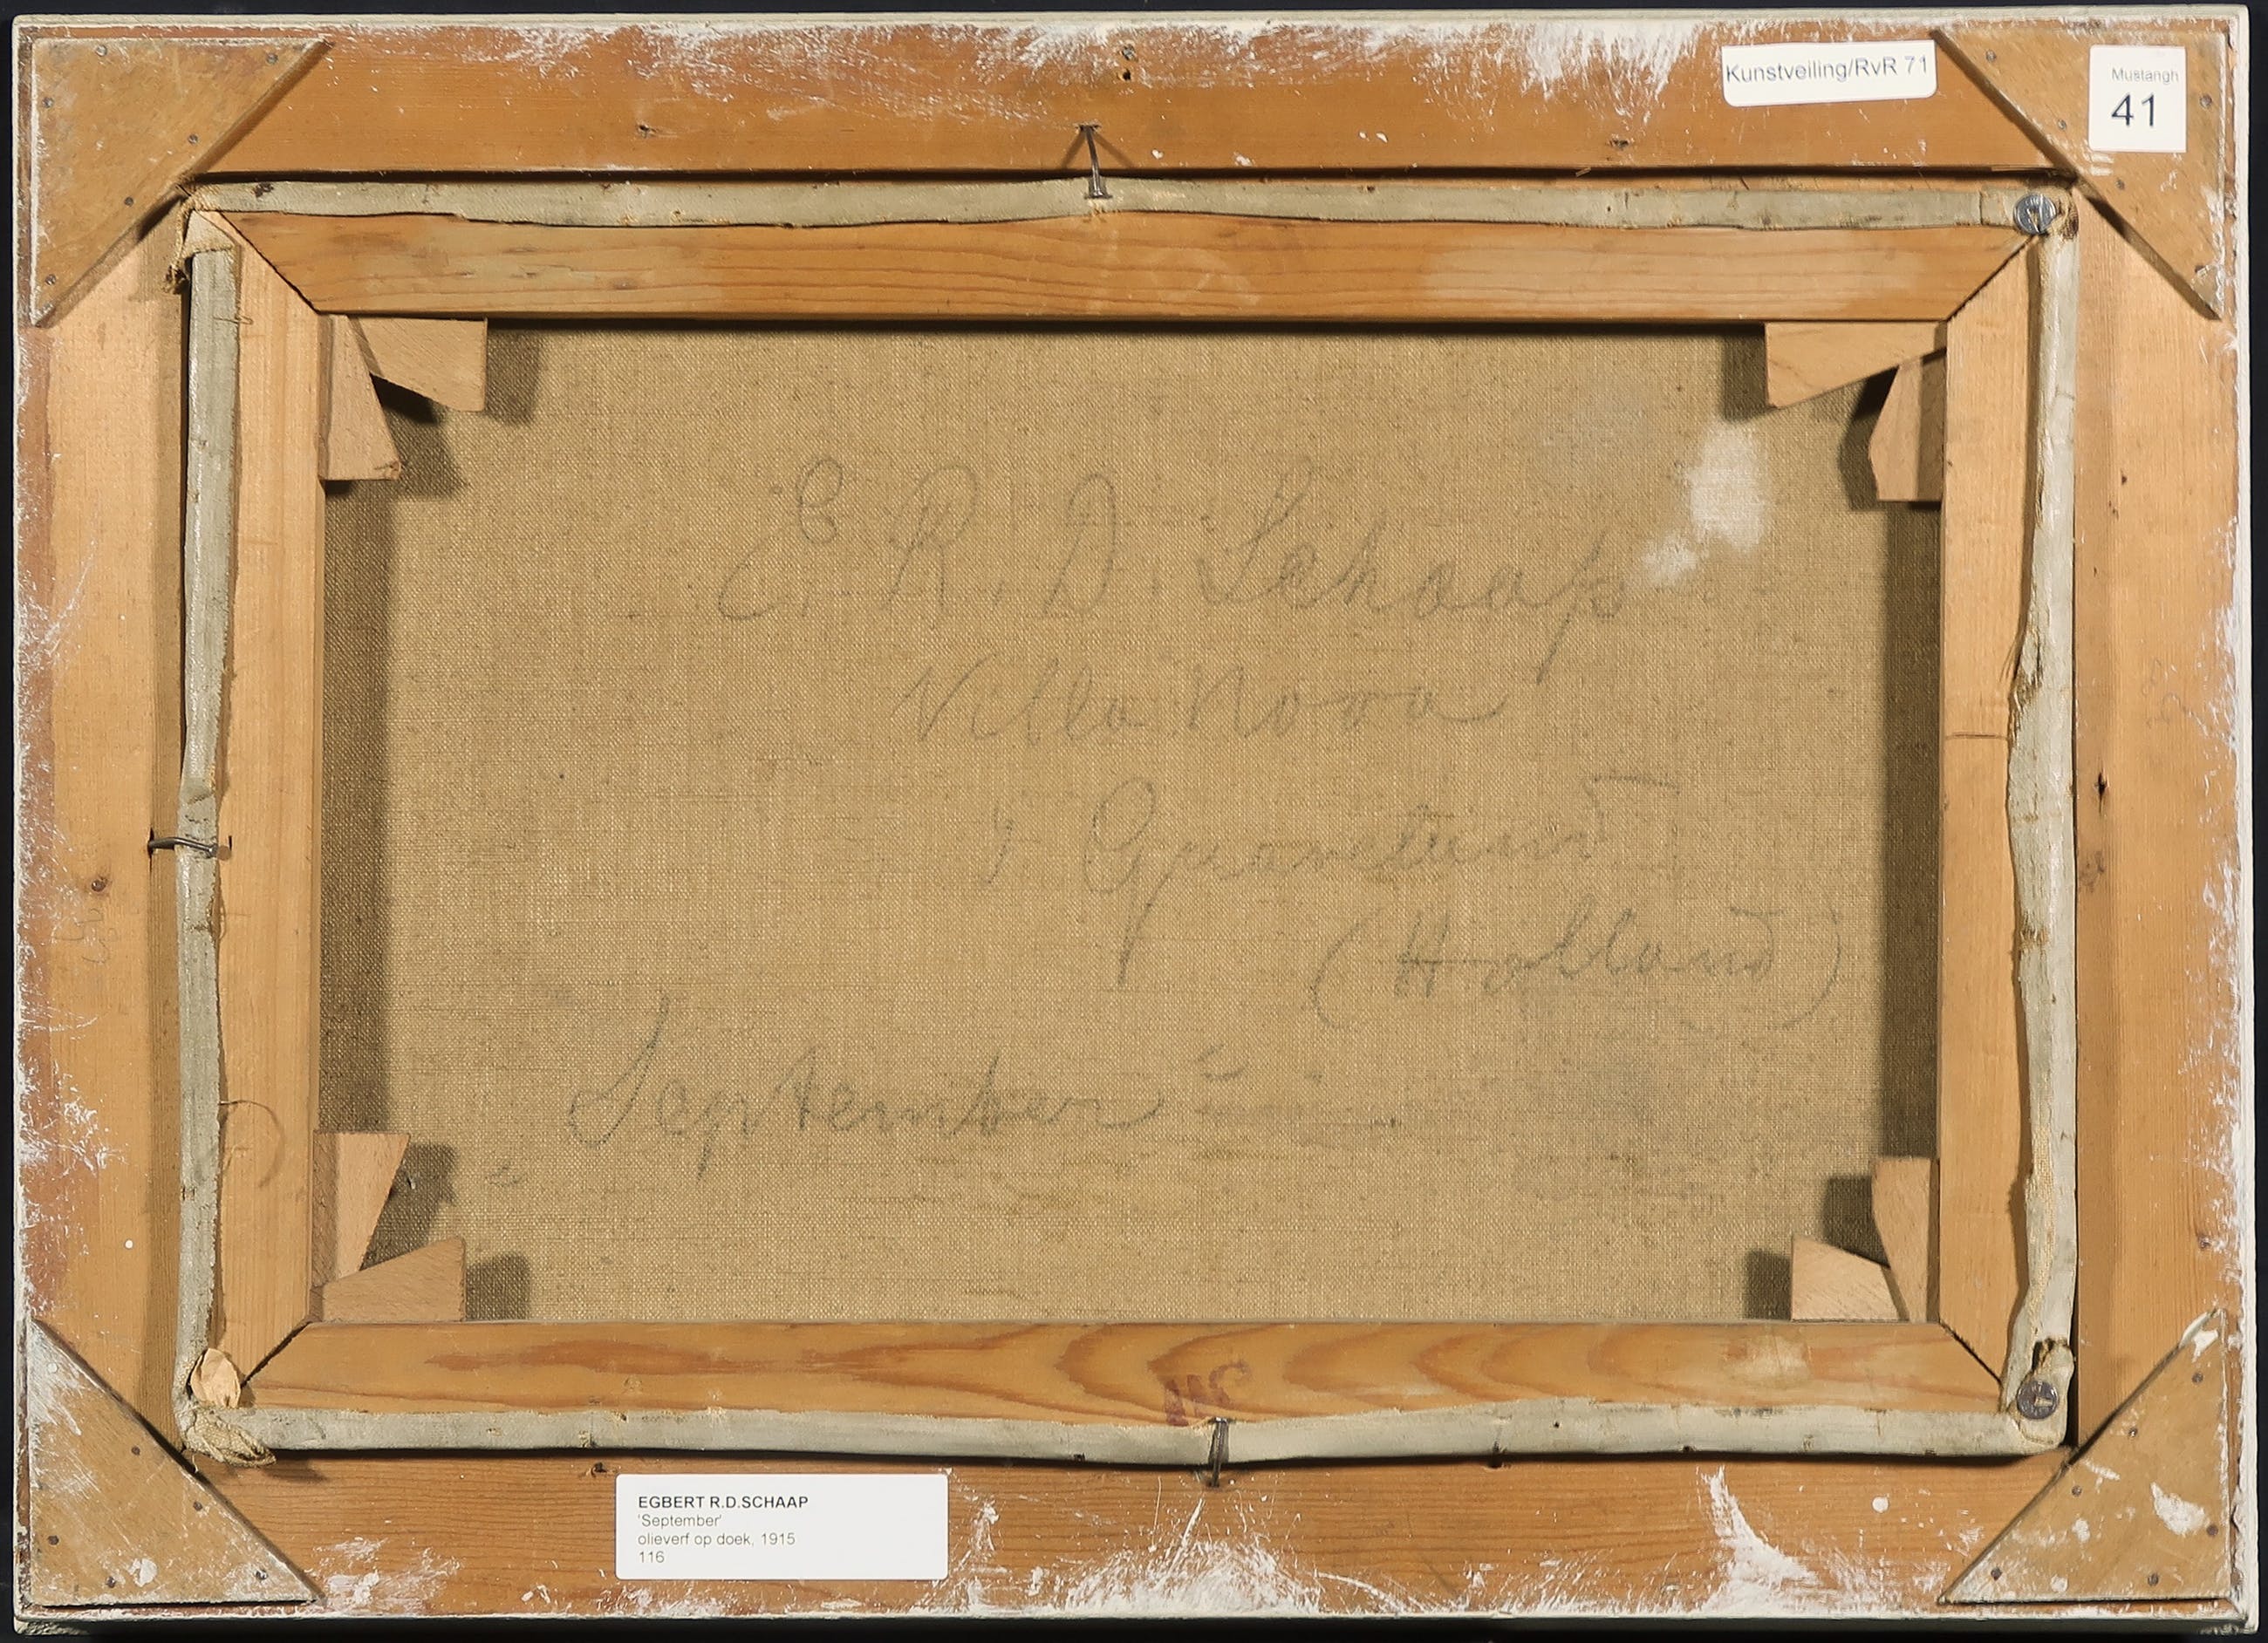 Kunstveiling/RvR 71
Mustangh
41
E. R. D. Schaap
Villa Nova
(Holland)
"September"
EGBERT R.D.SCHAAP
'September'
olieverf op doek, 1915
116